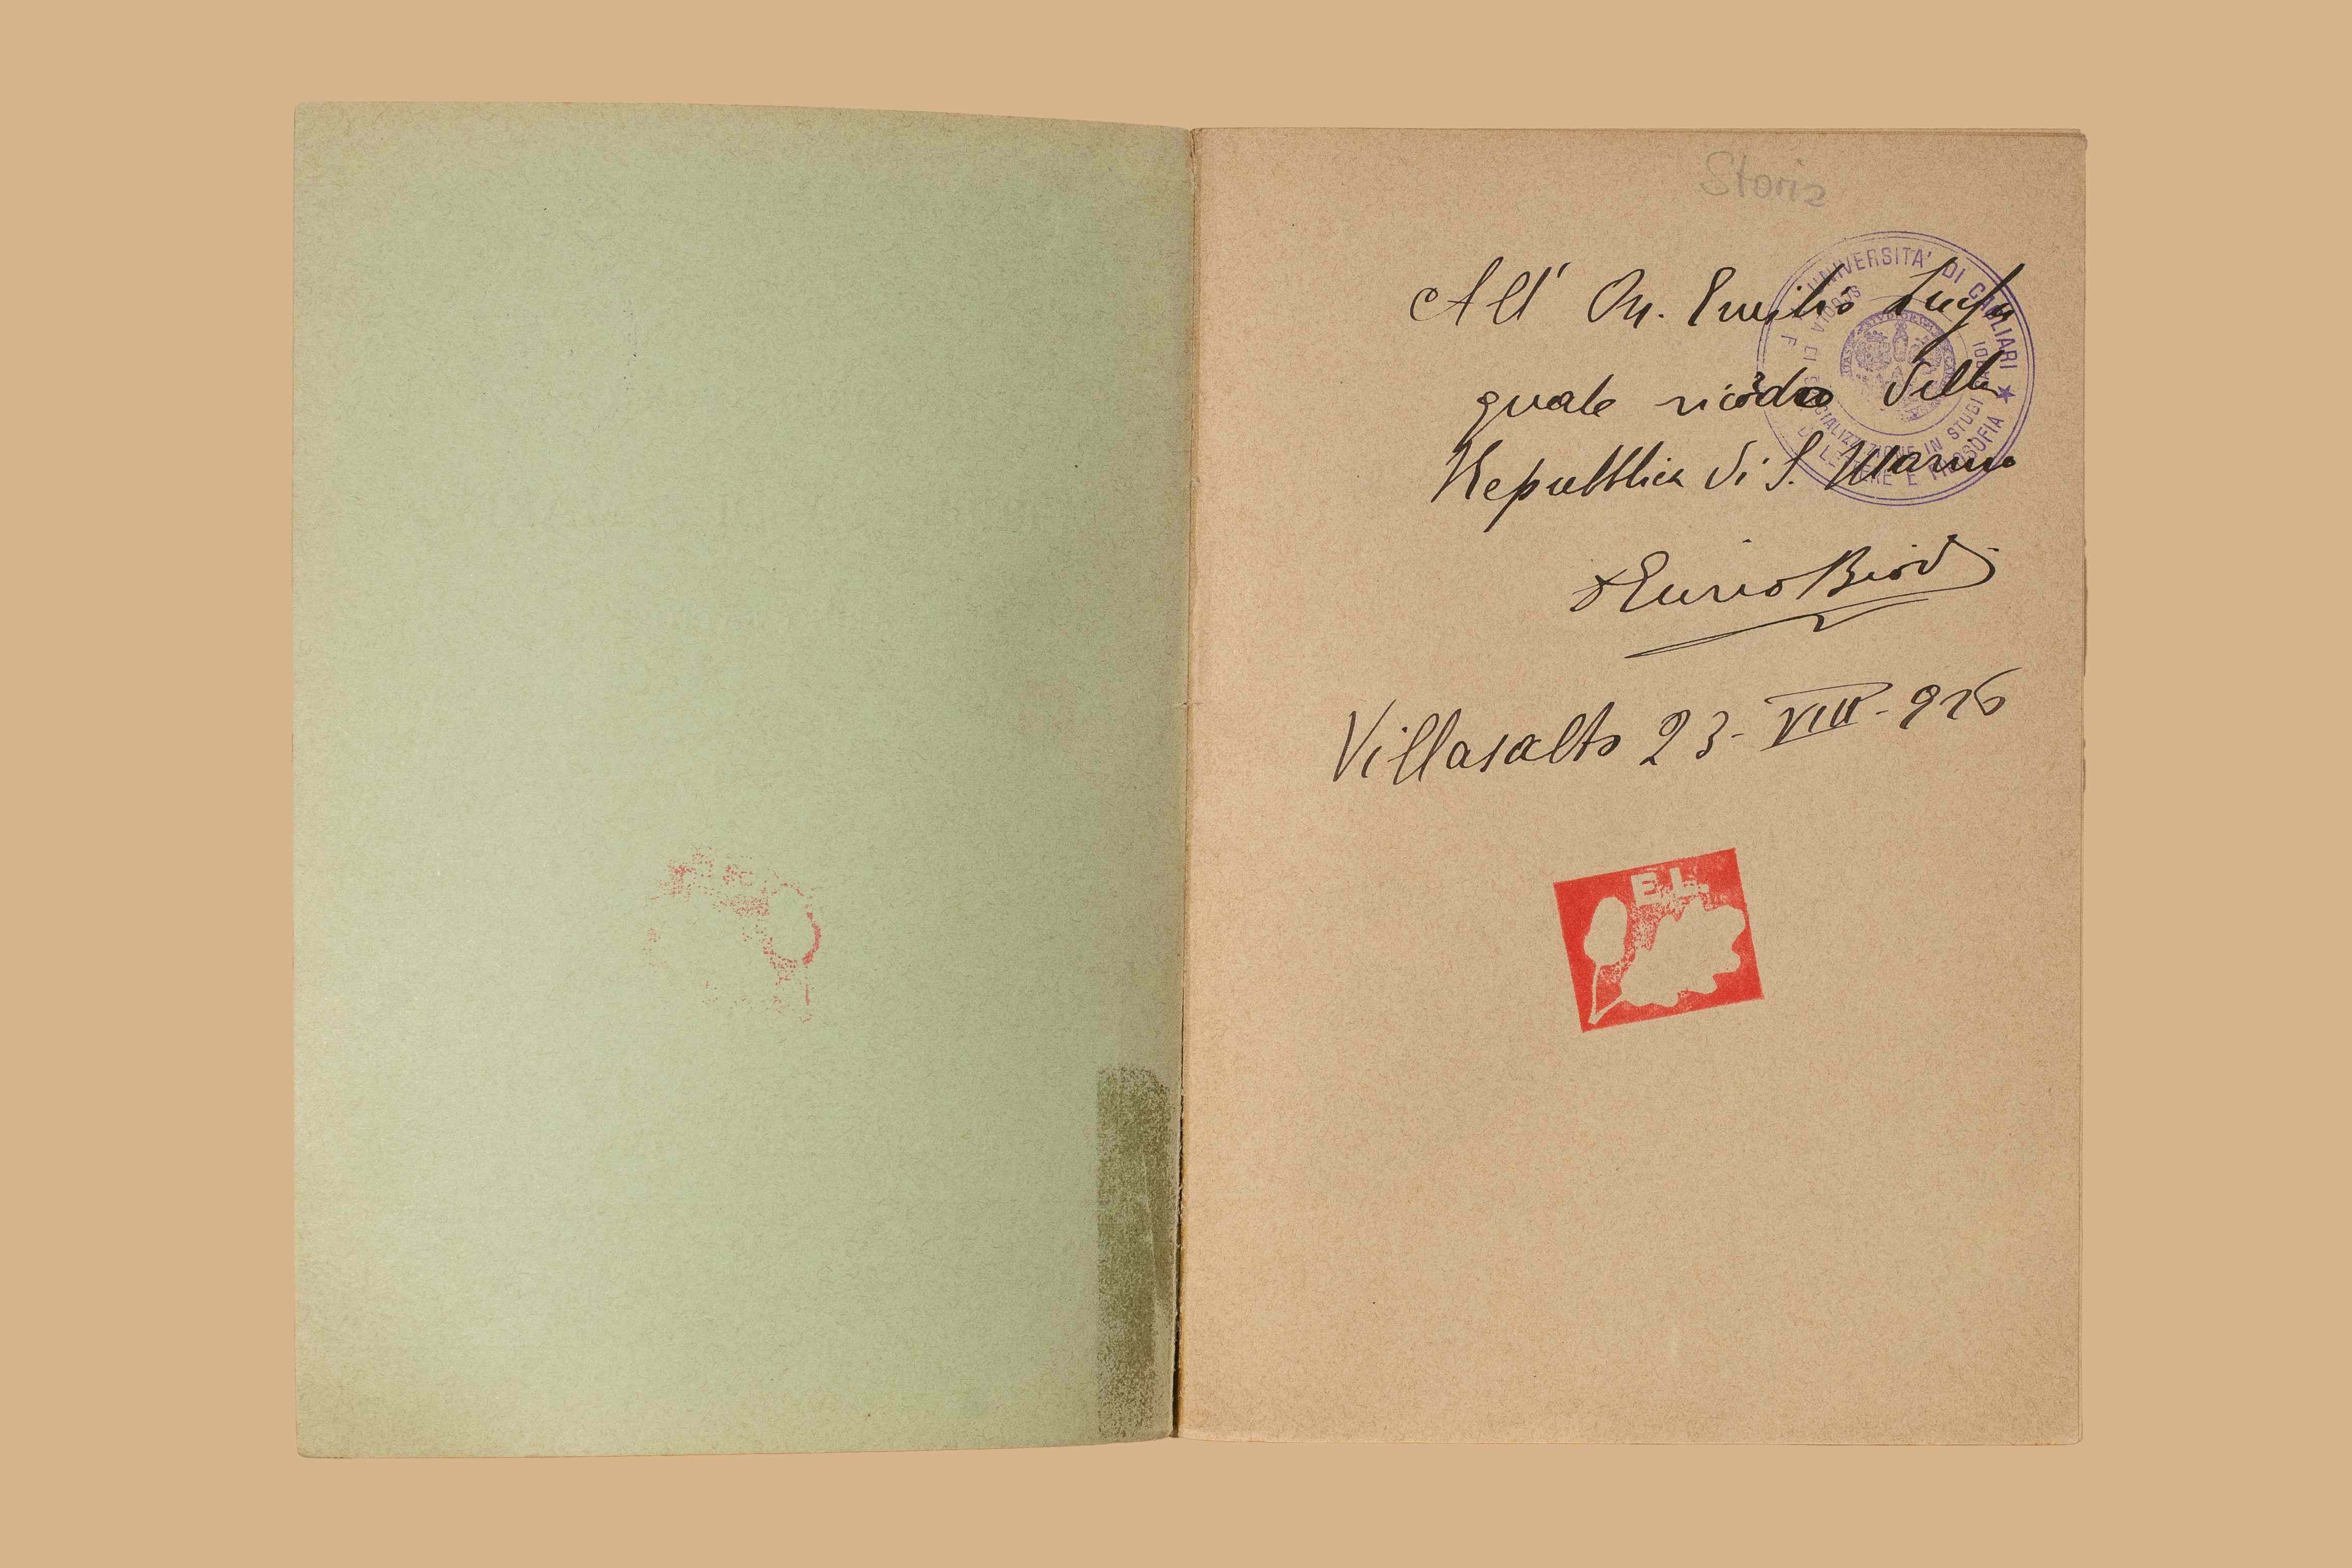 Storia
All' On. Emilio Lussu
quale ricordo della
Repubblica di S. Marino
Ennio Biondi
Villasalto 23-VIII-926
UNIVERSITA' DI CAGLIARI ★
LETTERE E FILOSOFIA
SCUOLA DI SPECIALIZZAZIONE IN STUDI SARDI
E.L.